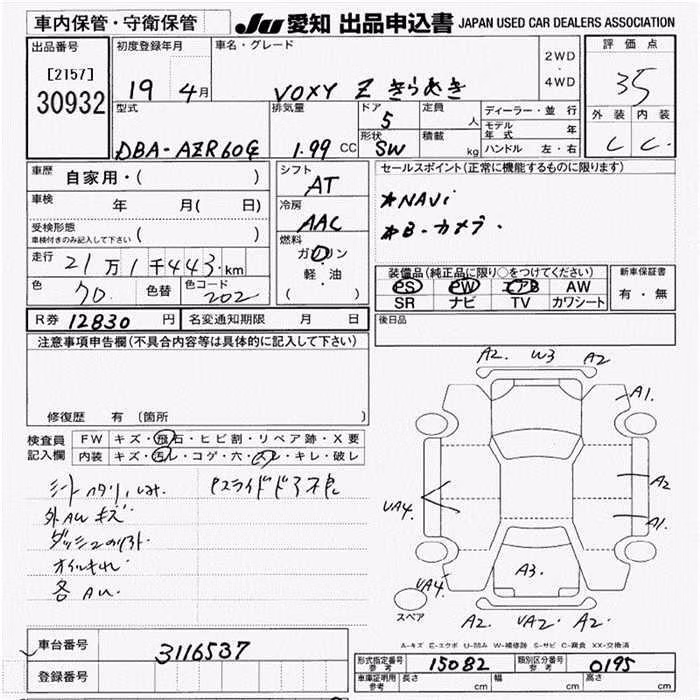 車内保管・守衛保管
JU 愛知 出品申込書 JAPAN USED CAR DEALERS ASSOCIATION
出品番号
[2157]
30932
初度登録年月
19 4月
車名・グレード
VOXY Z きらめき
2WD
・
4WD
評価点
35
外装 内装
C C
型式
DBA-AZR60G
排気量
1.99 CC
ドア
5
形状
SW
定員
人
積載
kg
ディーラー・並行
モデル年式 年
ハンドル 左・右
車歴 自家用・( )
車検 年 月( 日)
受検形態
車検付きのみ記入して下さい ( )
走行 21万1千443km
色 70 色替 色コード 202
シフト
AT
冷房
AAC
燃料
ガソリン
軽・油
( )
セールスポイント(正常に機能するものに限ります)
★NAVi
★B-カメラ・
装備品(純正品に限り○をつけてください)
PS PW エアB AW
SR ナビ TV カワシート
新車保証書
有・無
R券 12830 円 名変通知期限 月 日
後日品
注意事項申告欄(不具合内容等は具体的に記入して下さい)
修復歴 有 (箇所 )
検査員
記入欄
FW キズ・飛石・ヒビ割・リペア跡・X要
内装 キズ・汚レ・コゲ・穴・スレ・キレ・破レ
シートヘタリ、
外AWキズ
各AW
Pスライドドア不良
A2. W3 A2
A1.
A2
A1.
UA4.
A3.
UA4
スペア
A2. UA2 A2.
A-キズ E-エクボ U-凹み W-補修跡 S-サビ C-腐食 XX-交換済
車台番号 3116537
登録番号
形式指定番号 参考 15082 類別区分番号 参考 0195
車庫証明用 参考 長さ cm 幅 cm 高さ cm